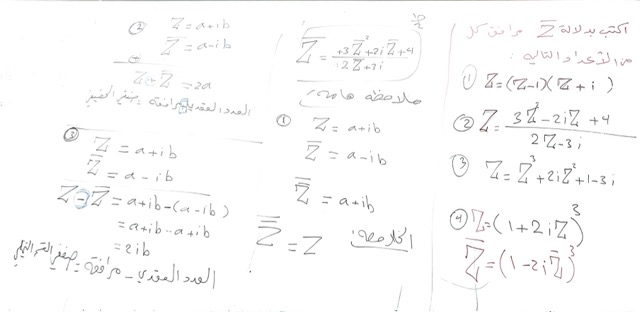 اكتب بدلالة Z̅ مرافق كل
من الأعداد التالية:
① Z=(Z-1)(Z+i)
② Z= (3Z²-2iZ+4)/(2Z-3i)
③ Z=Z³+2iZ²+1-3i
④ Z=(1+2iZ)³
Z̅=(1-2iZ̅)³
Z̅= (+3Z̅²+2iZ̅+4)/(2Z̅+3i)
ملاحظة هامة:
① Z=a+ib
Z̅=a-ib
Z̿=a+ib
الخلاصة:
Z̿=Z
② Z=a+ib
Z̅=a-ib
+
Z+Z̅=2a
العدد العقدي + مرافقه =
③ Z=a+ib
Z̅=a-ib
Z-Z̅=a+ib-(a-ib)
=a+ib-a+ib
=2ib
العدد العقدي - مرافقه =